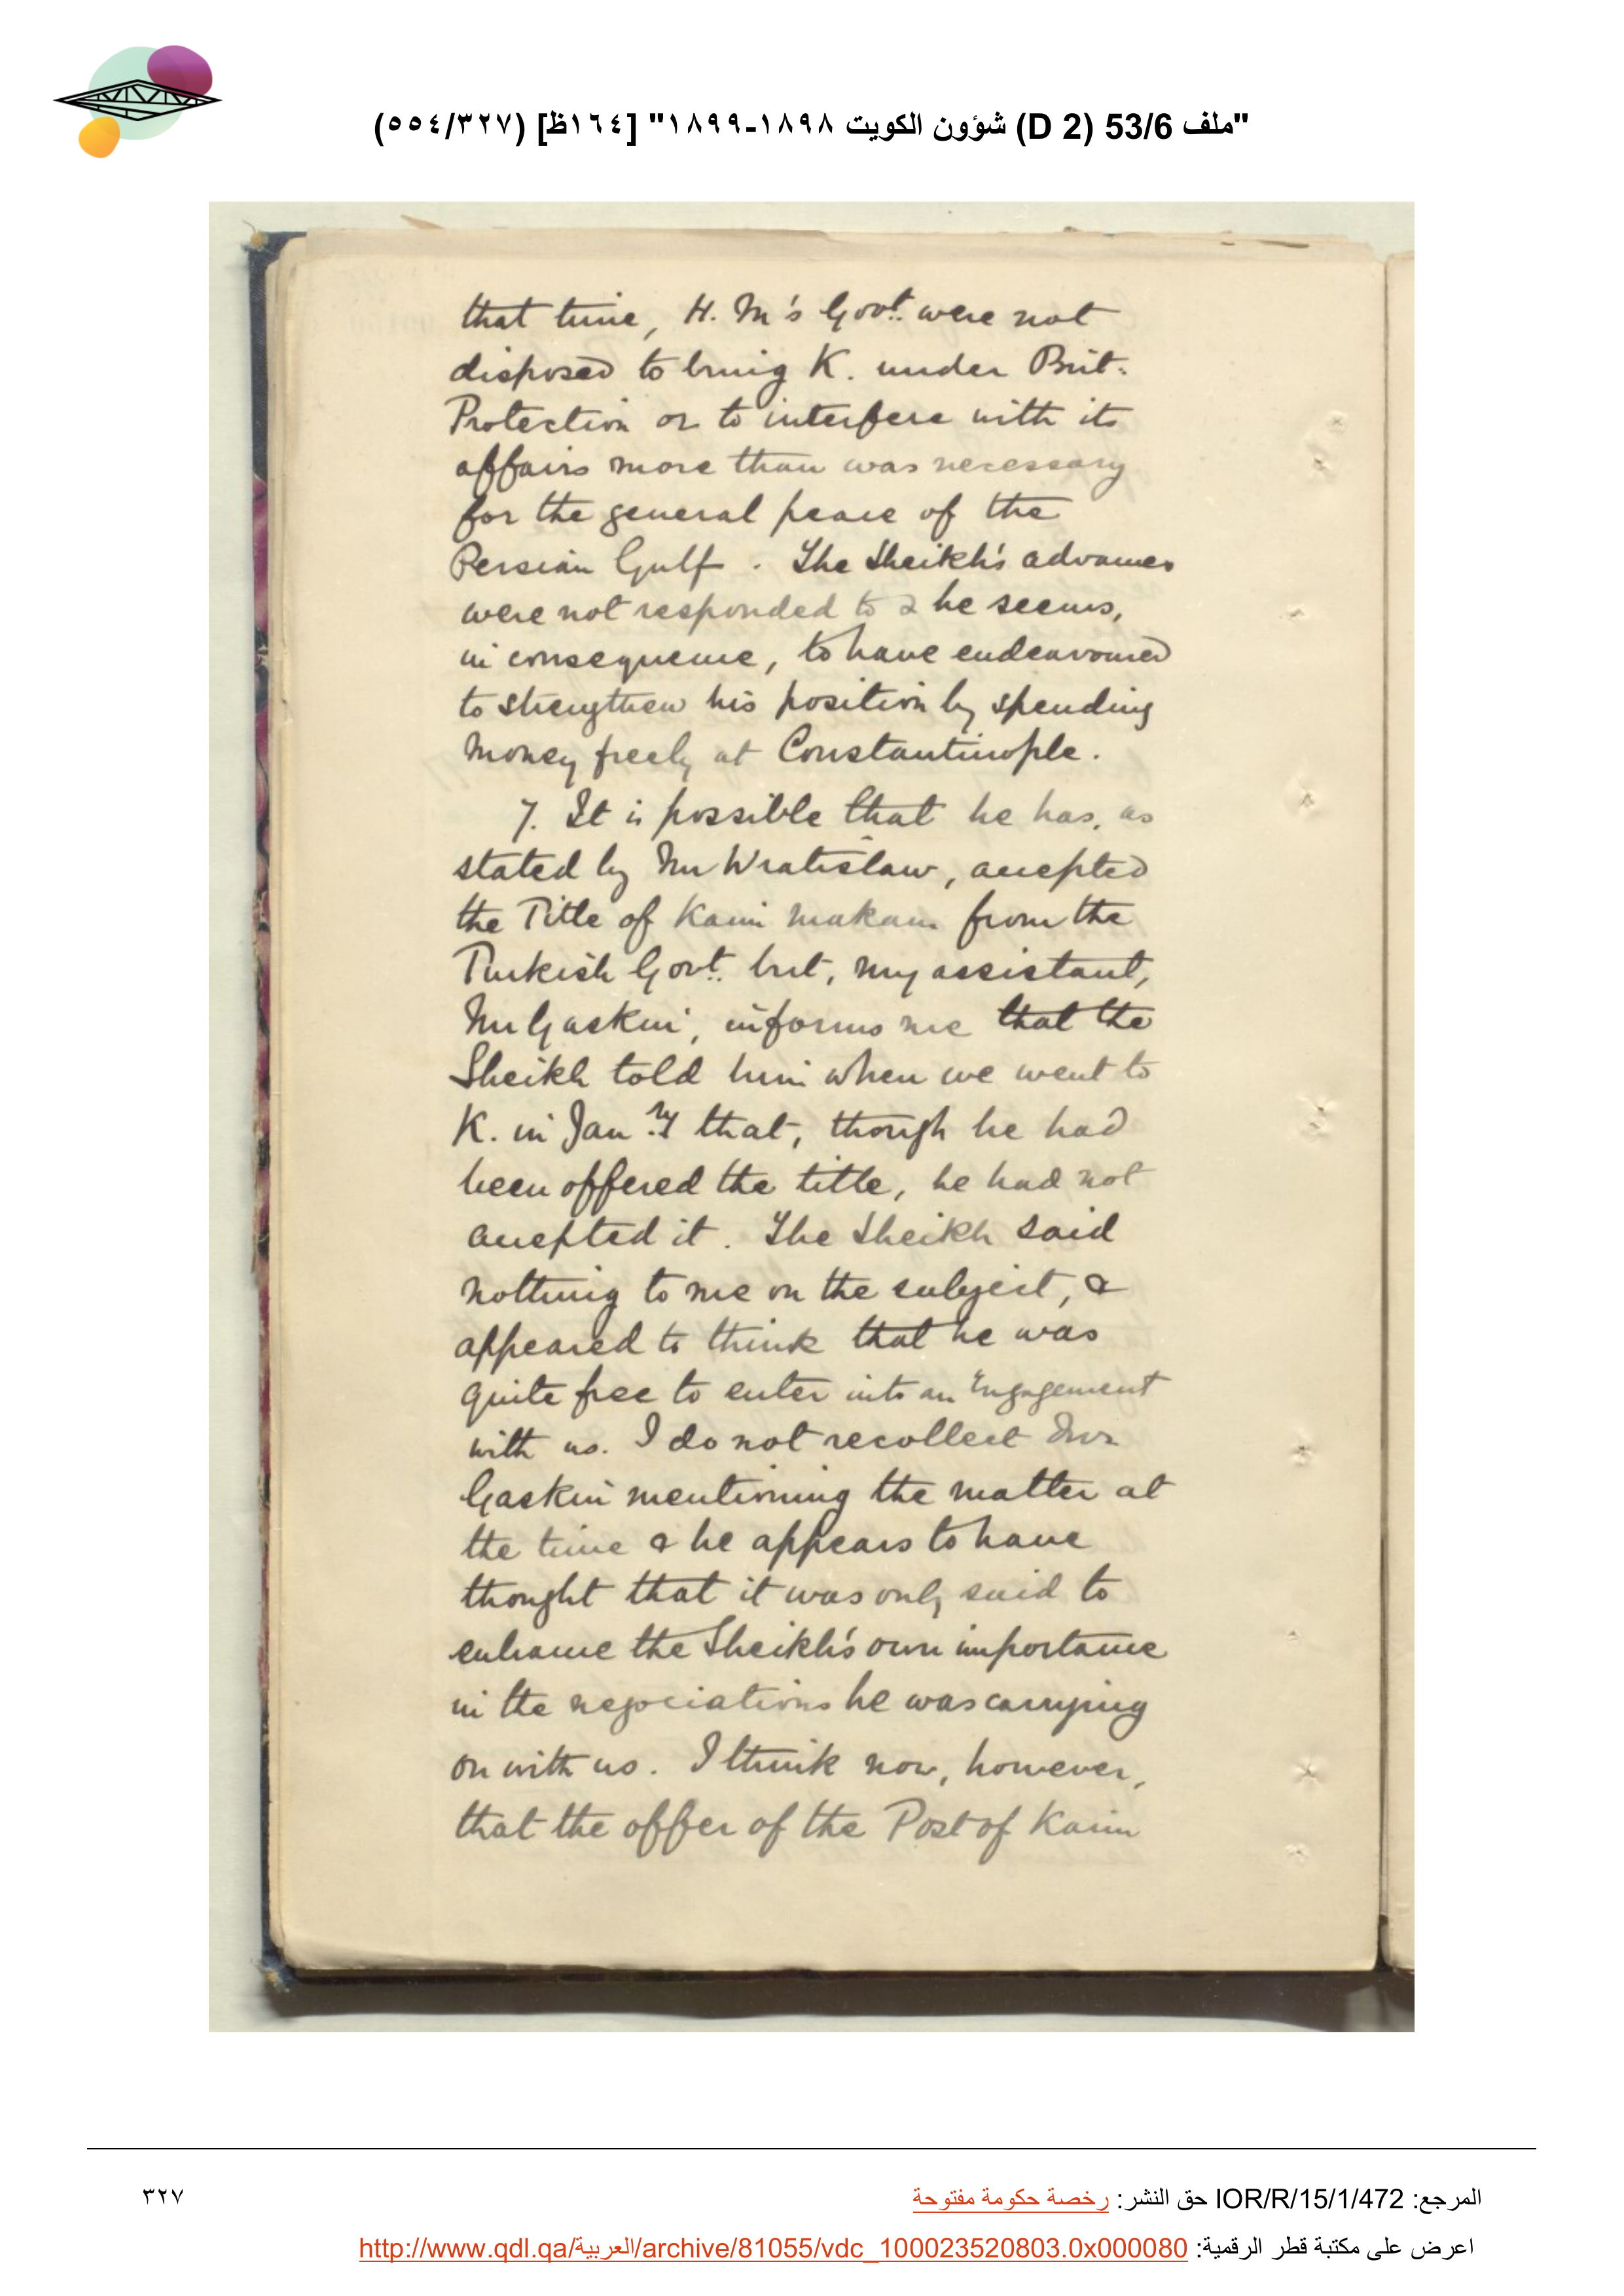 "ملف 53/6 (D 2) شؤون الكويت ١٨٩٨-١٨٩٩" [١٦٤ظ] (٥٥٤/٣٢٧)
that time, H. M's Govt. were not
disposed to bring K. under Brit.
Protection or to interfere with its
affairs more than was necessary
for the general peace of the
Persian Gulf. The Sheikh's advances
were not responded to & he seems,
in consequence, to have endeavoured
to strengthen his position by spending
money freely at Constantinople.
7. It is possible that he has, as
stated by Mr Wratislaw, accepted
the Title of Kaim makam from the
Turkish Govt. but, my assistant,
Mr Gaskin, informs me that the
Sheikh told him when we went to
K. in Jan.ry that, though he had
been offered the title, he had not
accepted it. The Sheikh said
nothing to me on the subject, &
appeared to think that he was
quite free to enter into an Engagement
with us. I do not recollect Mr
Gaskin mentioning the matter at
the time & he appears to have
thought that it was only said to
enhance the Sheikh's own importance
in the negociations he was carrying
on with us. I think now, however,
that the offer of the Post of Kaim
المرجع: IOR/R/15/1/472 حق النشر: رخصة حكومة مفتوحة
٣٢٧
اعرض على مكتبة قطر الرقمية: http://www.qdl.qa/العربية/archive/81055/vdc_100023520803.0x000080